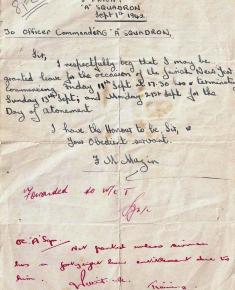 "A" SQUADRON
Sept 1st 1942
To Officer Commanding "A" SQUADRON,
Sir,
I respectfully beg that I may be
granted leave for the occasion of the Jewish New Year
commencing Friday 11th Sept at 17.30 hrs & terminating
Sunday 13th Sept; and Monday 21st Sept for the
Day of Atonement
I have the Honour to be, Sir,
Your Obedient servant.
F M
Forwarded to
OC. 'A' Sqn Not granted unless airman
has a leave entitlement due to
him.
Training